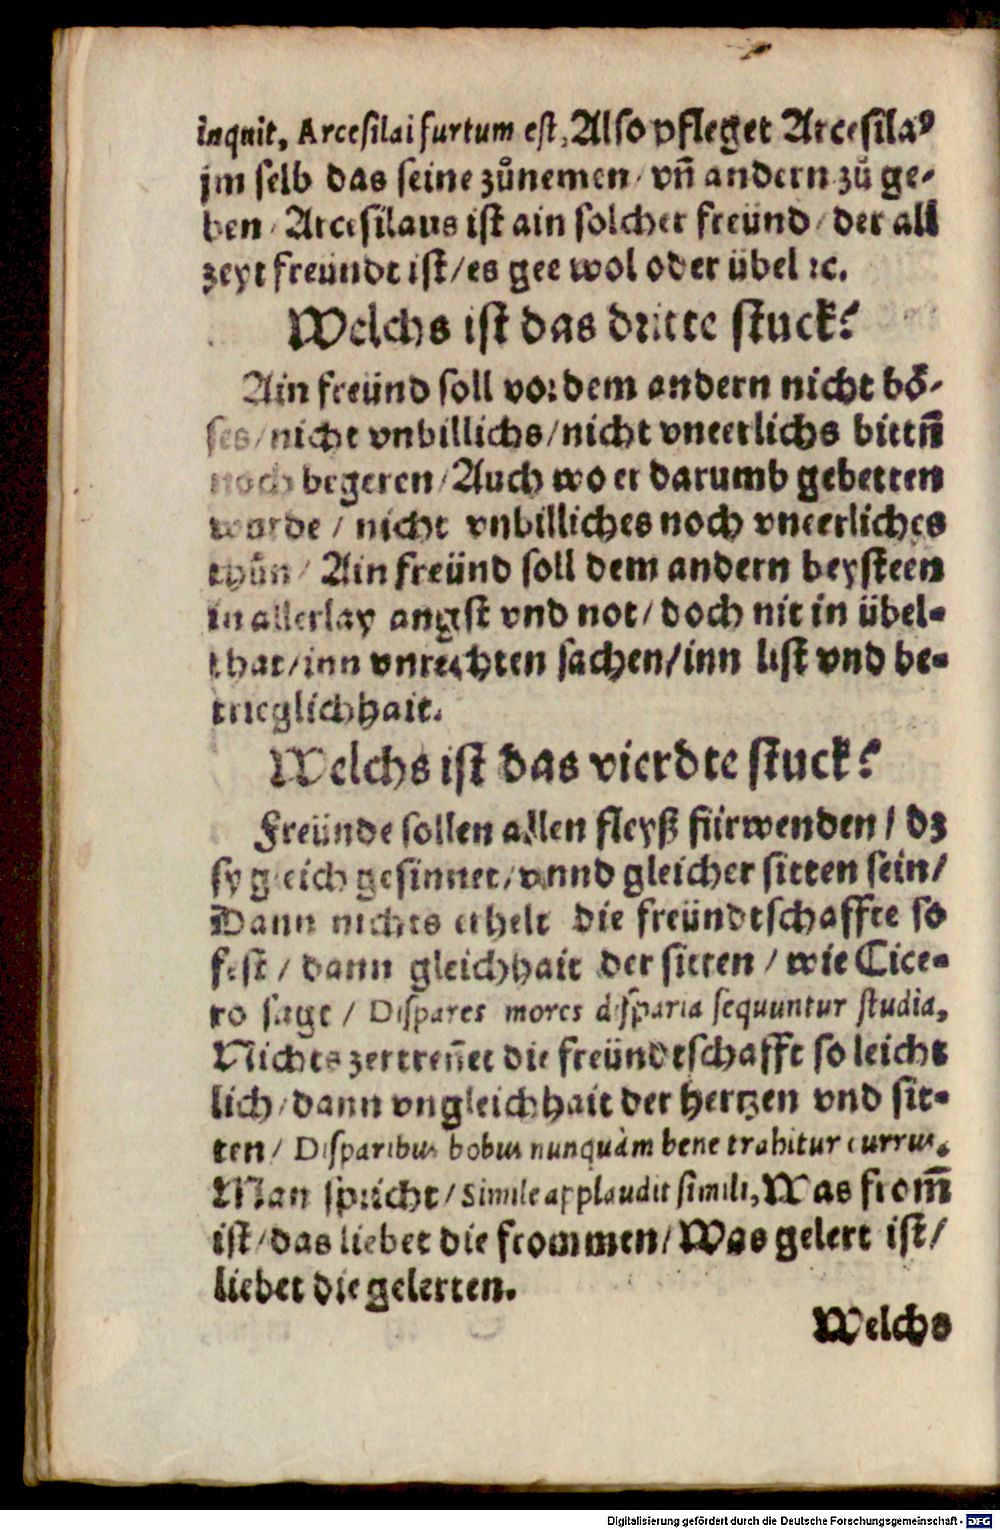 inquit, Arcesilai furtum est, Also pfleget Arcesilaꝰ
jm selb das seine zůnemen / vñ andern zů ge-
ben / Arcesilaus ist ain solcher freünd / der all
zeyt freündt ist / es gee wol oder übel ꝛc.
Welchs ist das dritte stuck?
Ain freünd soll vor dem andern nicht bö-
ses / nicht vnbillichs / nicht vneerlichs bittñ
noch begeren / Auch wo er darumb gebetten
wurde / nicht vnbilliches noch vneerliches
thůn / Ain freünd soll dem andern beysteen
in allerlay angst vnd not / doch nit in übel-
that / inn vnrechten sachen / inn list vnd be-
trieglichhait.
Welchs ist das vierdte stuck?
Freünde sollen allen fleyß fürwenden / dz
sy gleich gesinnet / vnnd gleicher sitten sein /
Dann nichts erhelt die freündtschaffte so
fest / dann gleichhait der sitten / wie Cice-
ro sagt / Dispares mores disparia sequuntur studia,
Nichts zertreñet die freündtschafft so leicht
lich / dann vngleichhait der hertzen vnd sit-
ten / Disparibus bobus nunquàm bene trahitur currus.
Man spricht / Simile applaudit simili, Was from̃
ist / das liebet die frommen / Was gelert ist /
liebet die gelerten.
Welchs
Digitalisierung gefördert durch die Deutsche Forschungsgemeinschaft - DFG